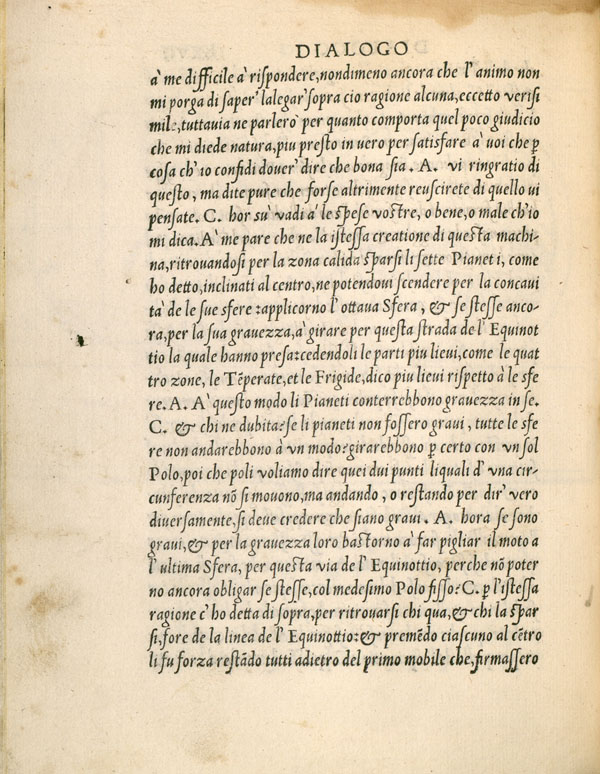 DIALOGO
à me difficile à rispondere,nondimeno ancora che l'animo non
mi porga di saper' lalegar'sopra cio ragione alcuna,eccetto verisi
mile,tuttauia ne parlero' per quanto comporta quel poco giudicio
che mi diede natura,piu presto in vero per satisfare à voi che ꝑ
cosa ch'io confidi douer' dire che bona sia. A. vi ringratio di
questo, ma dite pure che forse altrimente reuscirete di quello ui
pensate. C. hor su' vadi a' le spese vostre, o bene,o male ch'io
mi dica. A' me pare che ne la istessa creatione di questa machi-
na,ritrouandosi per la zona calida sparsi li sette Pianeti, come
ho detto,inclinati al centro,ne potendoui scendere per la concaui
ta' de le sue sfere:applicorno l'ottaua Sfera, & se stesse anco-
ra,per la sua grauezza,à girare per questa strada de l'Equinot
tio la quale hanno presa:cedendoli le parti piu lieui,come le quat
tro zone, le Tẽperate,et le Frigide,dico piu lieui rispetto à le sfe
re. A. A' questo modo li Pianeti conterrebbono grauezza in se.
C. & chi ne dubita?se li pianeti non fossero graui, tutte le sfe
re non andarebbono à vn modo:girarebbono ꝑ certo con vn sol
Polo,poi che poli voliamo dire quei dui punti liquali d'vna cir-
cunferenza nõ si mouono,ma andando, o restando per dir' vero
diuersamente,si deue credere che siano graui. A. hora se sono
graui,& per la grauezza loro bastorno à far pigliar il moto a
l'ultima Sfera, per questa via de l'Equinottio, perche nõ poter
no ancora obligar se stesse,col medesimo Polo fisso? C. ꝑ l'istessa
ragione c'ho detta di sopra,per ritrouarsi chi qua,& chi la spar
si,fore de la linea de l'Equinottio:& premẽdo ciascuno al cẽtro
li fu forza restãdo tutti adietro del primo mobile che,firmassero